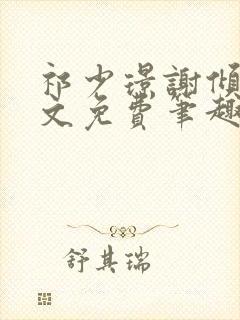 祁少璟謝傾
文免費筆趣
舒其瑞